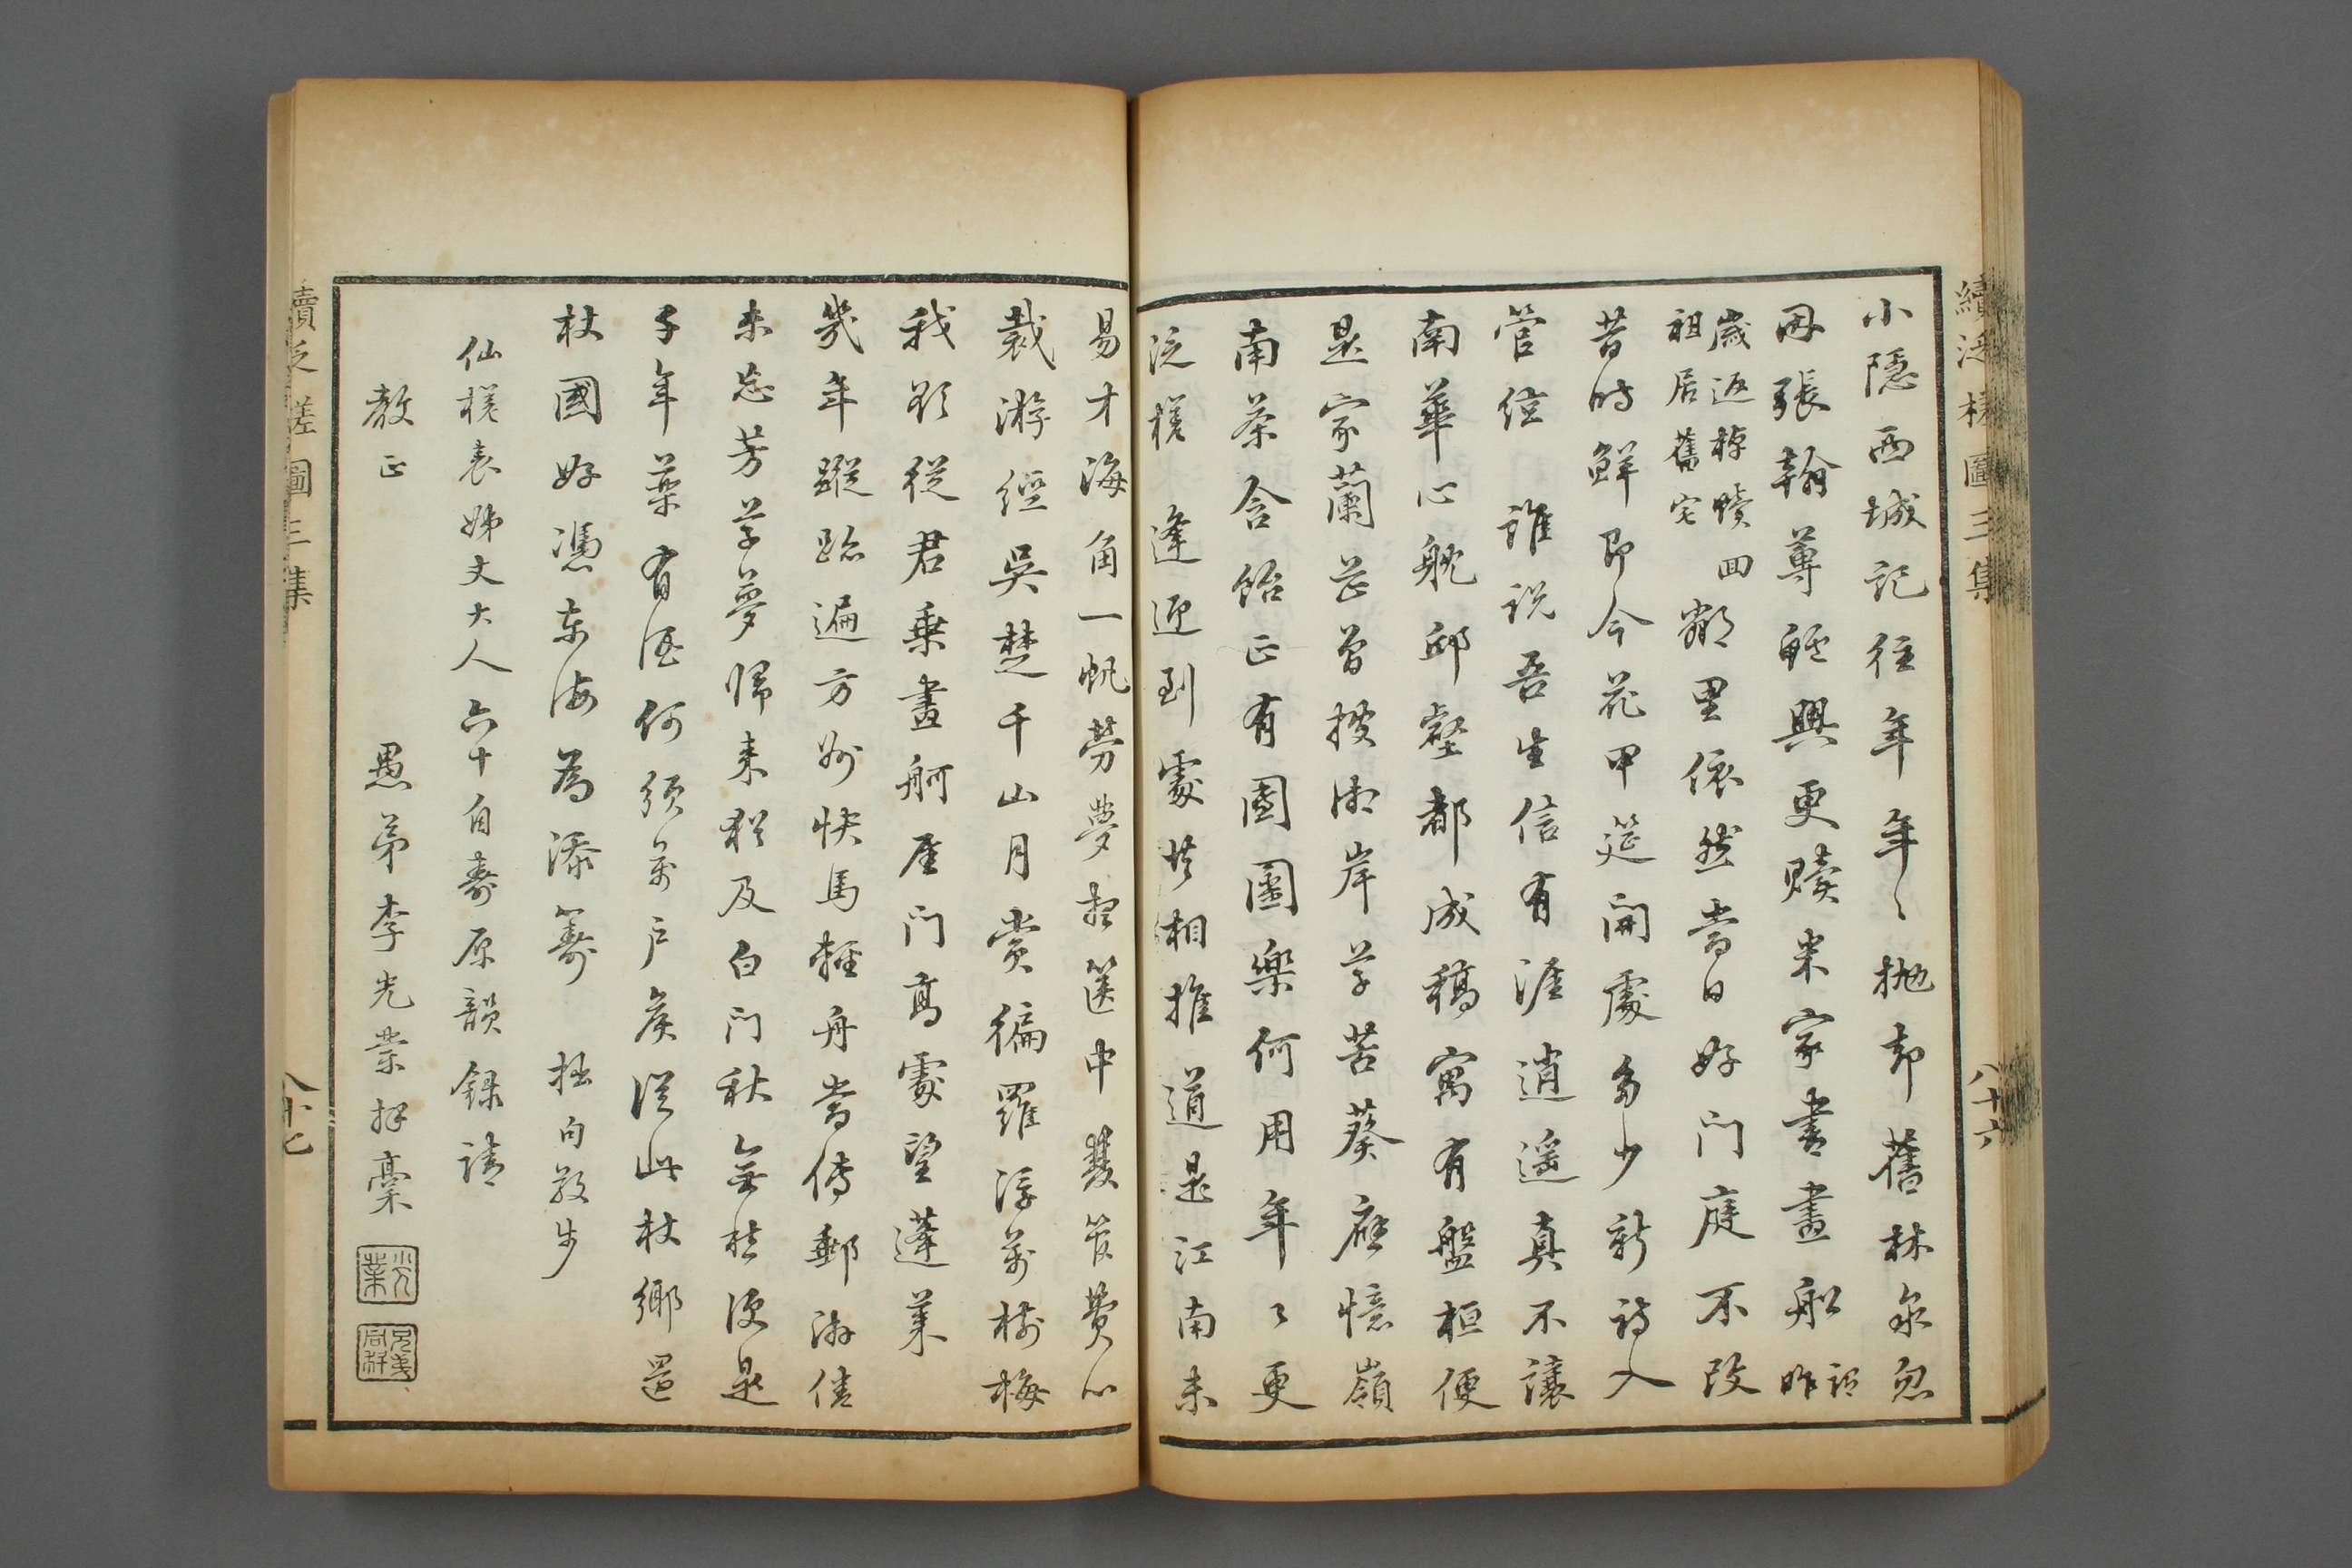 續泛槎圖三集
八十六
小隱西城記往年年〻拋却舊林泉忽
因張翰蓴鱸興更賺米家書畫船 記昨
歲返棹贖回
祖居舊宅
鄰里依然當日好門庭不改
昔時鮮即今花甲筵開處多少新詩入
管絃 誰說吾生信有涯逍遙真不讓
南華心躭邱壑都成稿寓有盤桓便
是家蘭芷曾搜湘岸草苦葵應憶嶺
南茶含飴正有團圞樂何用年〻更
泛槎 逢迎到處共相推道是江南未
易才海角一帆勞夢想篋中雙管費心
裁游經吳楚千山月賞徧羅浮萬樹梅
我欲從君乘畫舸屋門高處望蓬萊
幾年蹤跡遍方州快馬輕舟當傳郵游倦
未忘芳草夢歸來猶及白門秋無愁便是
千年藥有酒何須萬户矦從此杖鄉還
杖國好憑東海為添籌 拙句敬步
仙槎表姊丈大人六十自壽原韻錄請
教正 愚弟李光業拜稾
光業
續泛槎圖三集
八十七